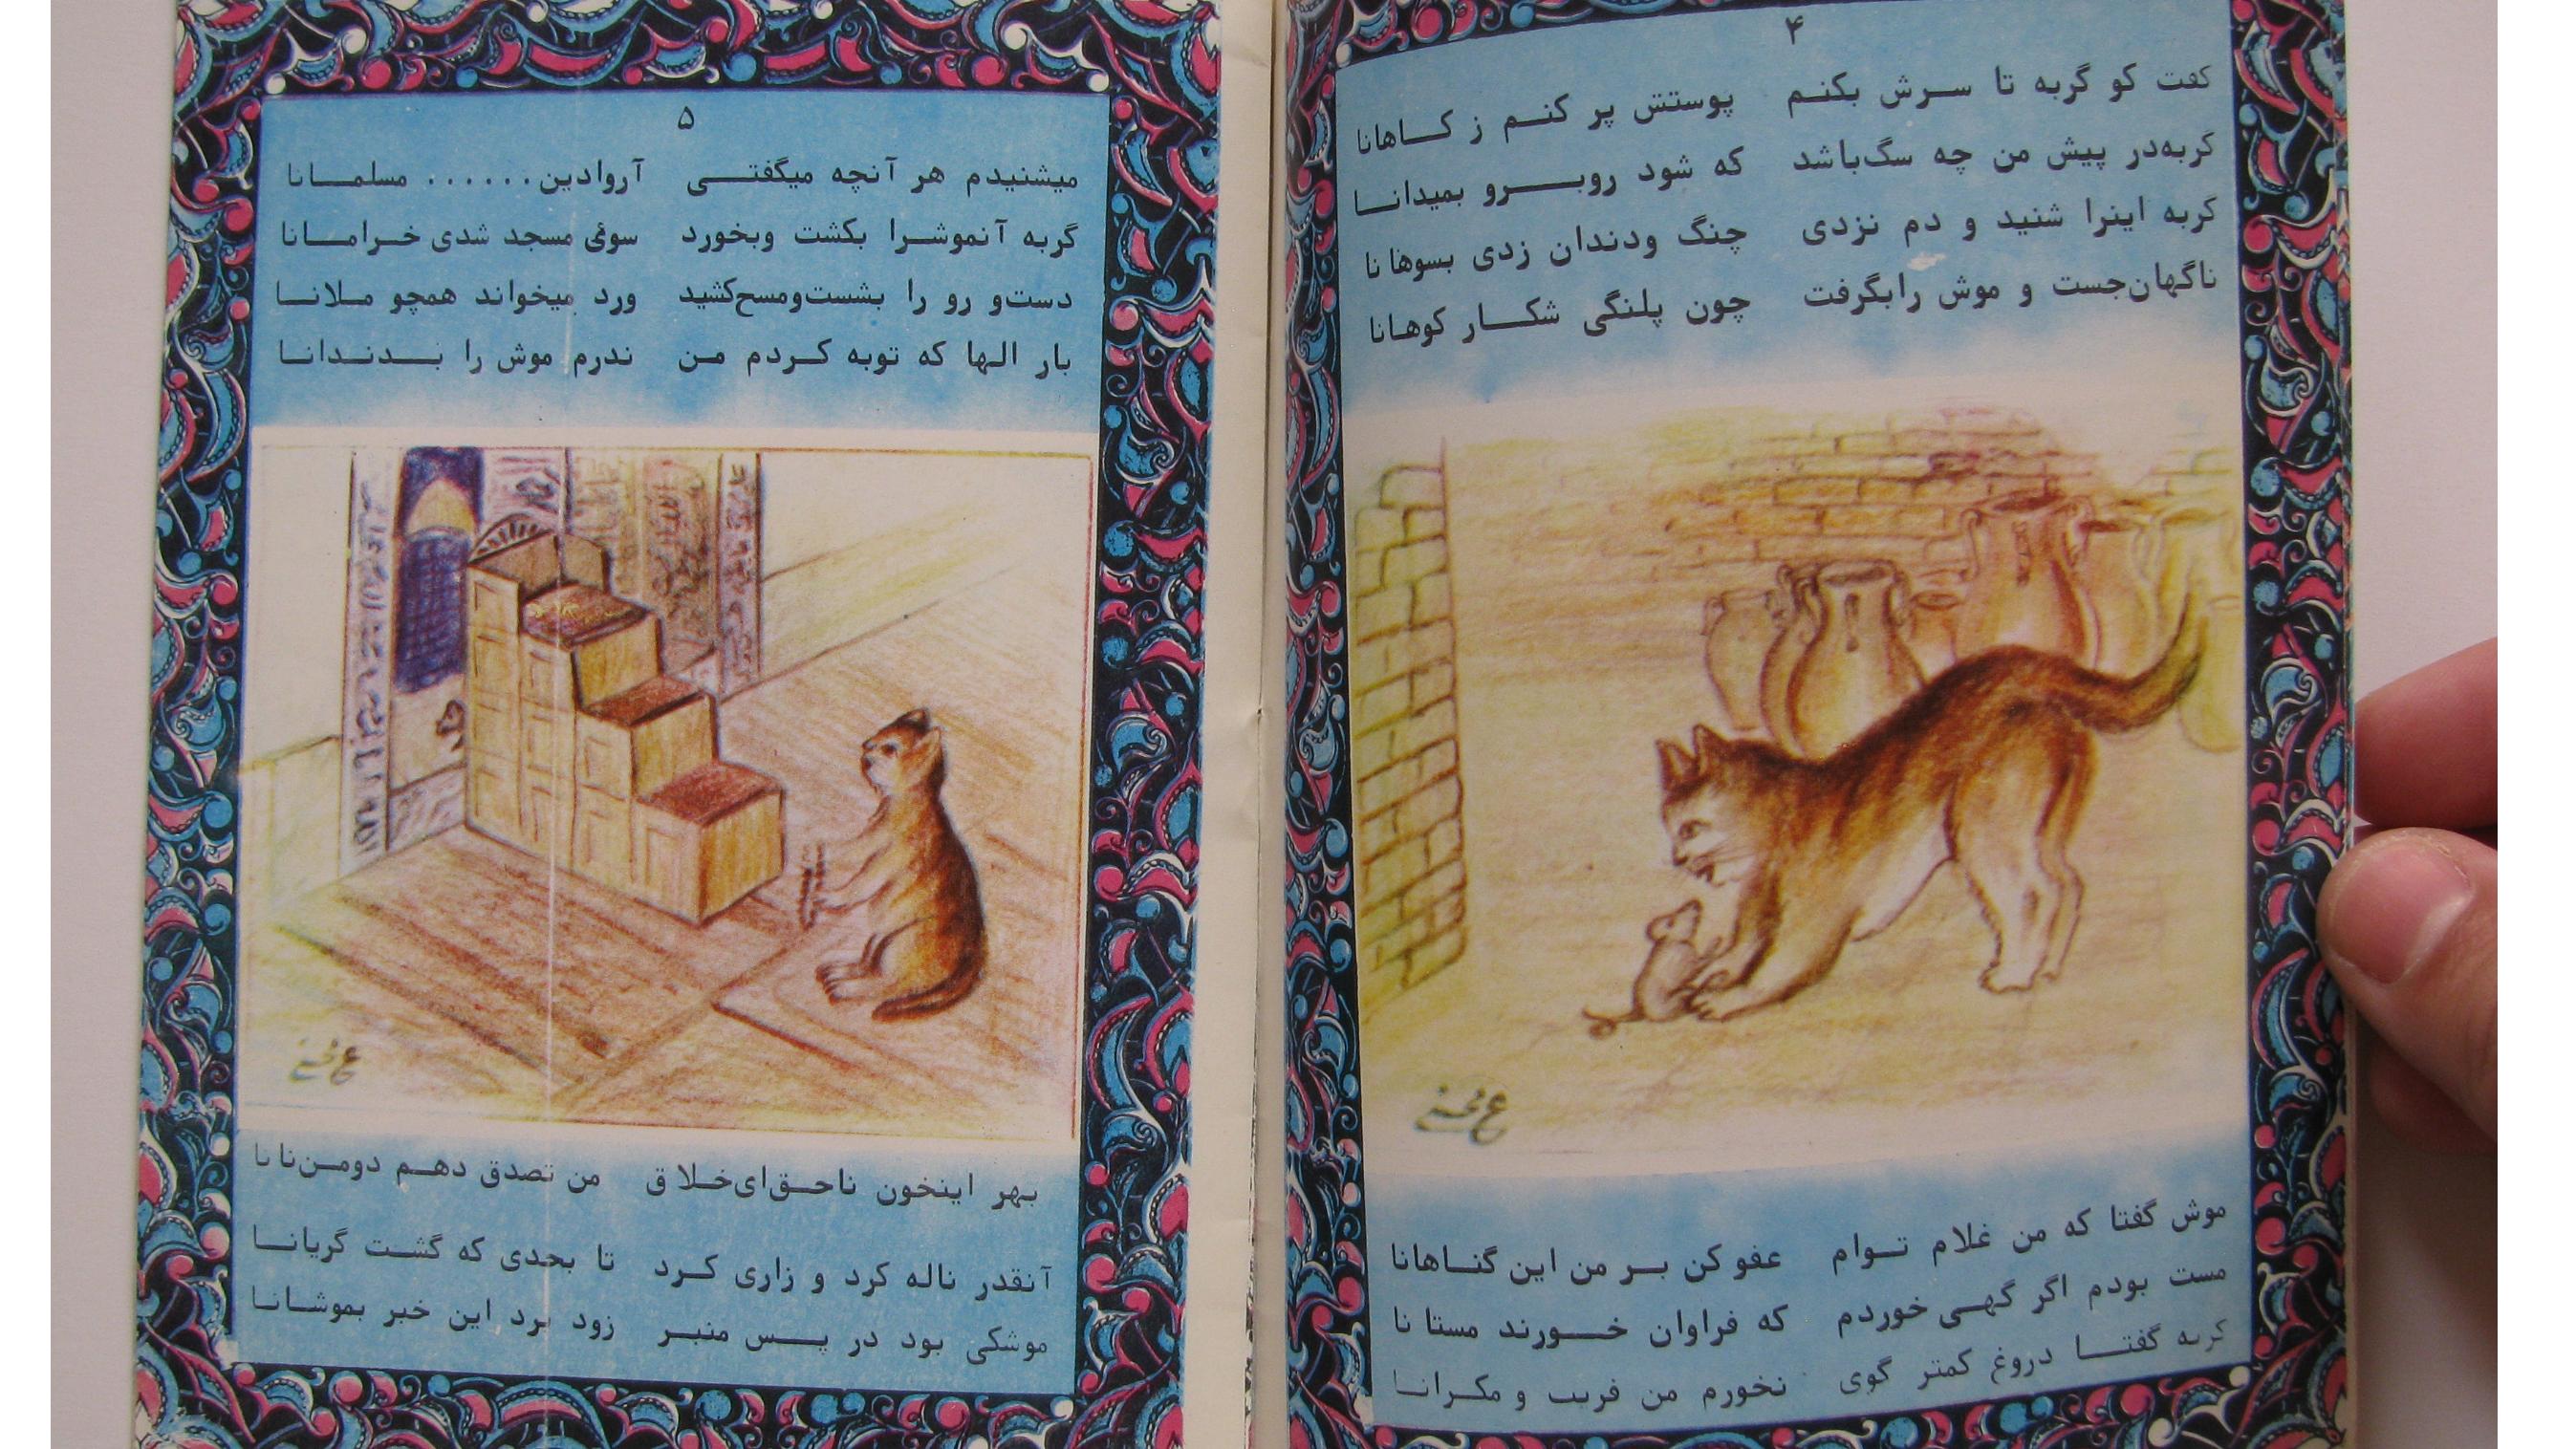 ۴
گفت کو گربه تا سرش بکنم پوستش پر کنم ز کاهانا
گربه‌در پیش من چه سگ‌باشد که شود روبرو بمیدانا
گربه اینرا شنید و دم نزدی چنگ ودندان زدی بسوهانا
ناگهان‌جست و موش رابگرفت چون پلنگی شکار کوهانا
موش گفتا که من غلام توام عفو کن بر من این گناهانا
مست بودم اگر گهی خوردم که فراوان خورند مستانا
گربه گفتا دروغ کمتر گوی نخورم من فریب و مکرانا
۵
میشنیدم هر آنچه میگفتی آروادین...... مسلمانا
گربه آنموشرا بکشت وبخورد سوی مسجد شدی خرامانا
دست‌و رو را بشست‌ومسح‌کشید ورد میخواند همچو ملانا
بار الها که توبه کردم من ندرم موش را بدندانا
بهر اینخون ناحق‌ای‌خلاق من تصدق دهم دومن‌نانا
آنقدر ناله کرد و زاری کرد تا بحدی که گشت گریانا
موشکی بود در پس منبر زود برد این خبر بموشانا